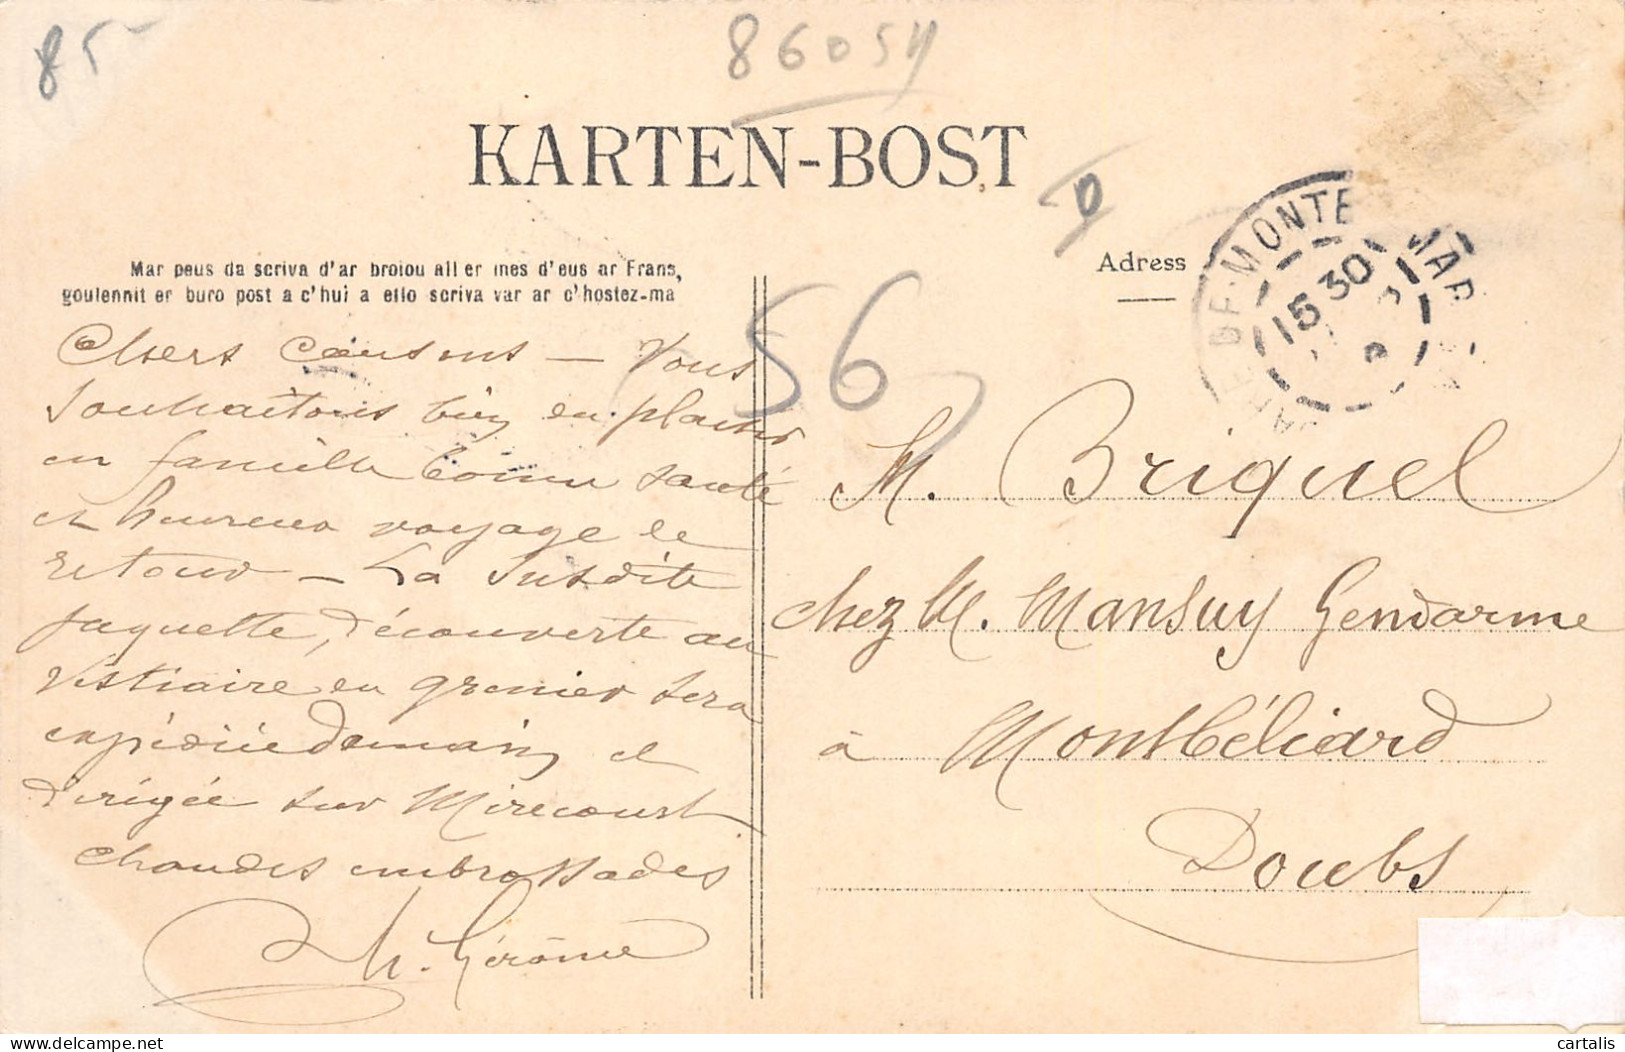 85-
8605
KARTEN-BOST
Mar peus da scriva d'ar broiou all er mes d'eus ar Frans,
goulennit er buro post a c'hui a ello scriva var ar c'hostez-ma
Adress
DE-MONTE MAR
15 30
56
Chers Cousins — Vous
souhaitons bien du plaisir
en famille bonne santé
et heureux voyage le
retour — La susdite
jaquette, découverte au
vestiaire du grenier sera
expédiée demain et
dirigée sur Mirecourt
chaudes embrassades
h. Gérôme
M. Briquel
chez M. Mansuy Gendarme
à Montbéliard
Doubs
cartalis
delcampe.net